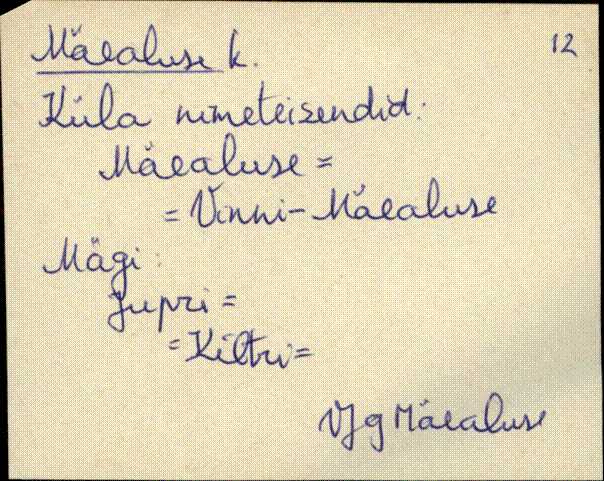 Mäealuse k. 12
Küla nimeteisendid:
Mäealuse =
= Vinni-Mäealuse
Mägi:
Jupri =
= Kiltri =
VJg Mäealuse